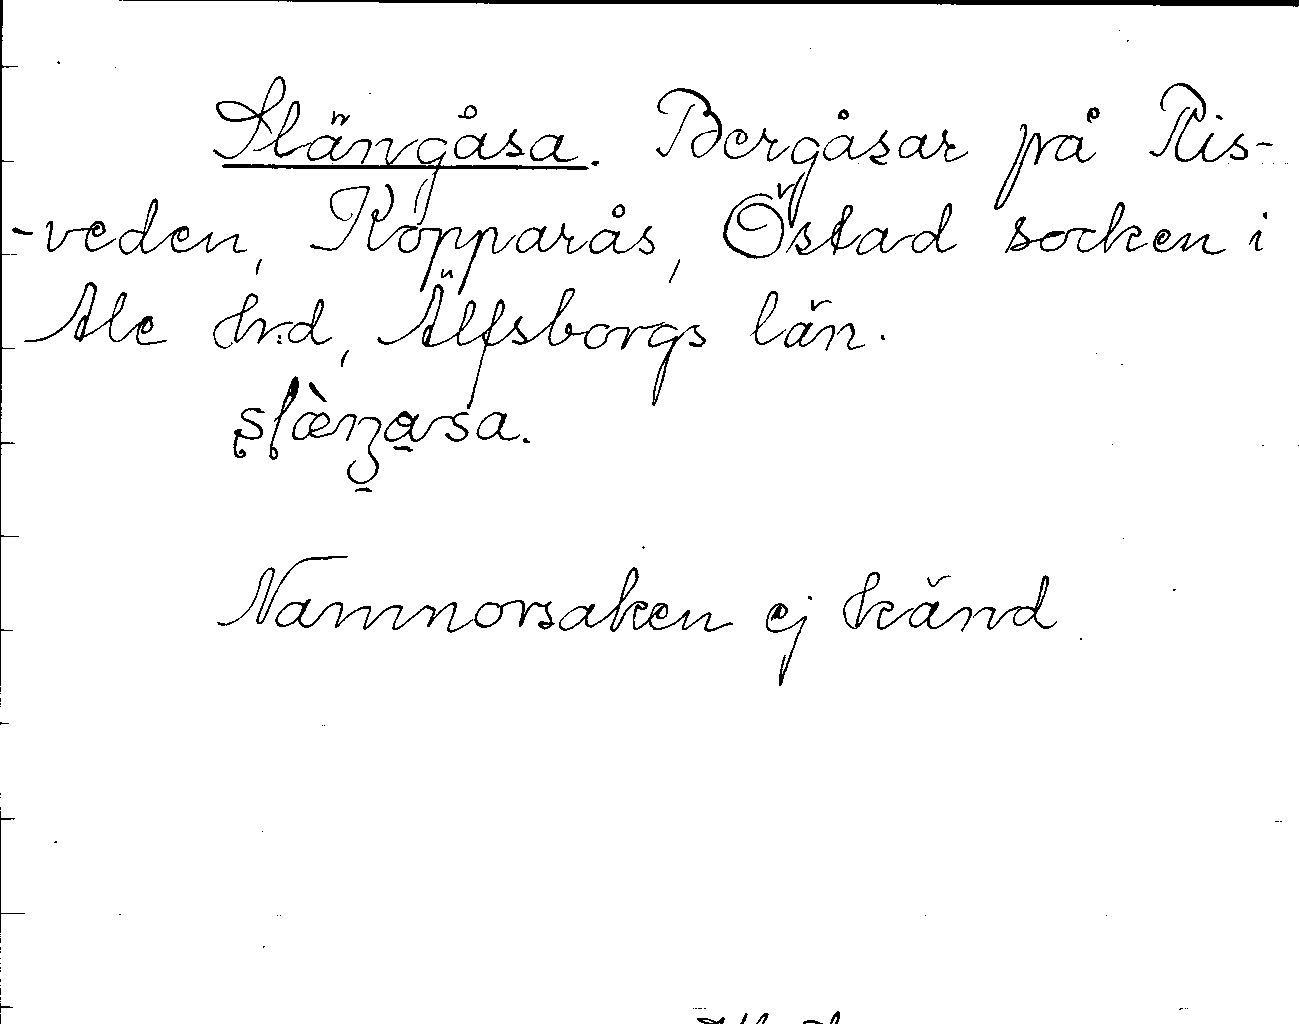 Slängåsa. Bergåsar på Ris-
-veden, Kopparås, Östad socken i
Ale hrd, Älfsborgs län.
Namnorsaken ej känd